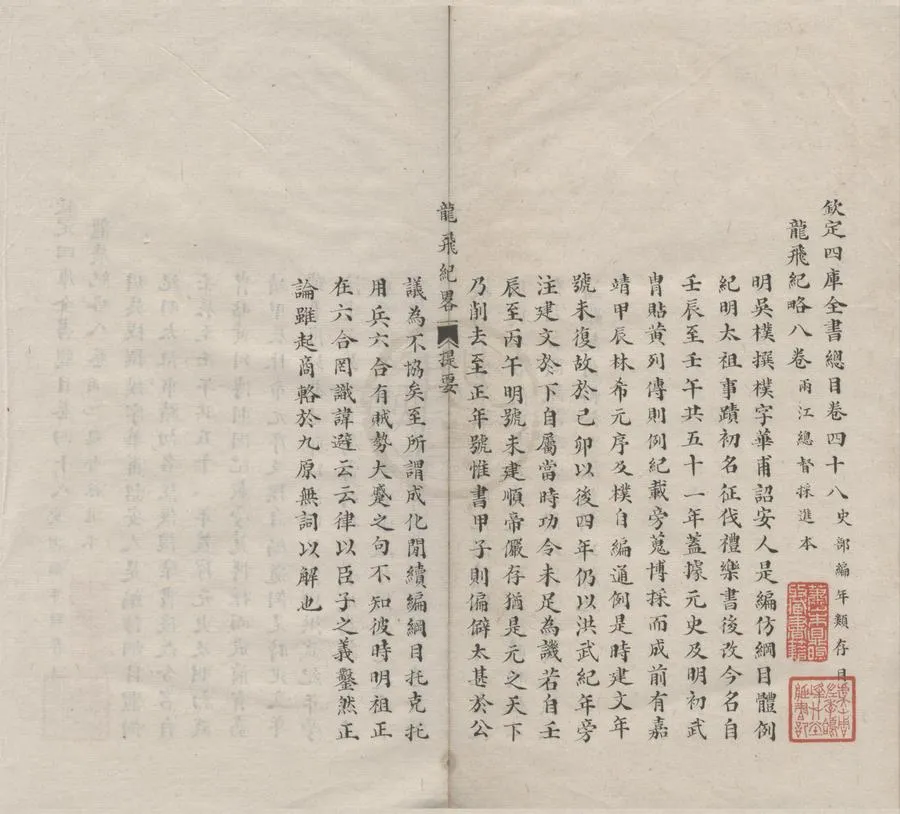 欽定四庫全書總目卷四十八史部編年類存目
龍飛紀略八卷兩江總督採進本
明吳樸撰樸字華甫詔安人是編仿綱目體例
紀明太祖事蹟初名征伐禮樂書後改今名自
壬辰至壬午共五十一年蓋據元史及明初武
胄貼黃列傳則例紀載旁蒐博採而成前有嘉
靖甲辰林希元序及樸自編通例是時建文年
號未復故於己卯以後四年仍以洪武紀年旁
注建文於下自屬當時功令未足為譏若自壬
辰至丙午明號未建順帝儼存猶是元之天下
乃削去至正年號惟書甲子則偏僻太甚於公
龍飛紀畧
提要
議為不協矣至所謂成化間續編綱目托克托
用兵六合有賊勢大蹙之句不知彼時明祖正
在六合罔識諱避云云律以臣子之義鑿然正
論雖起商輅於九原無詞以解也